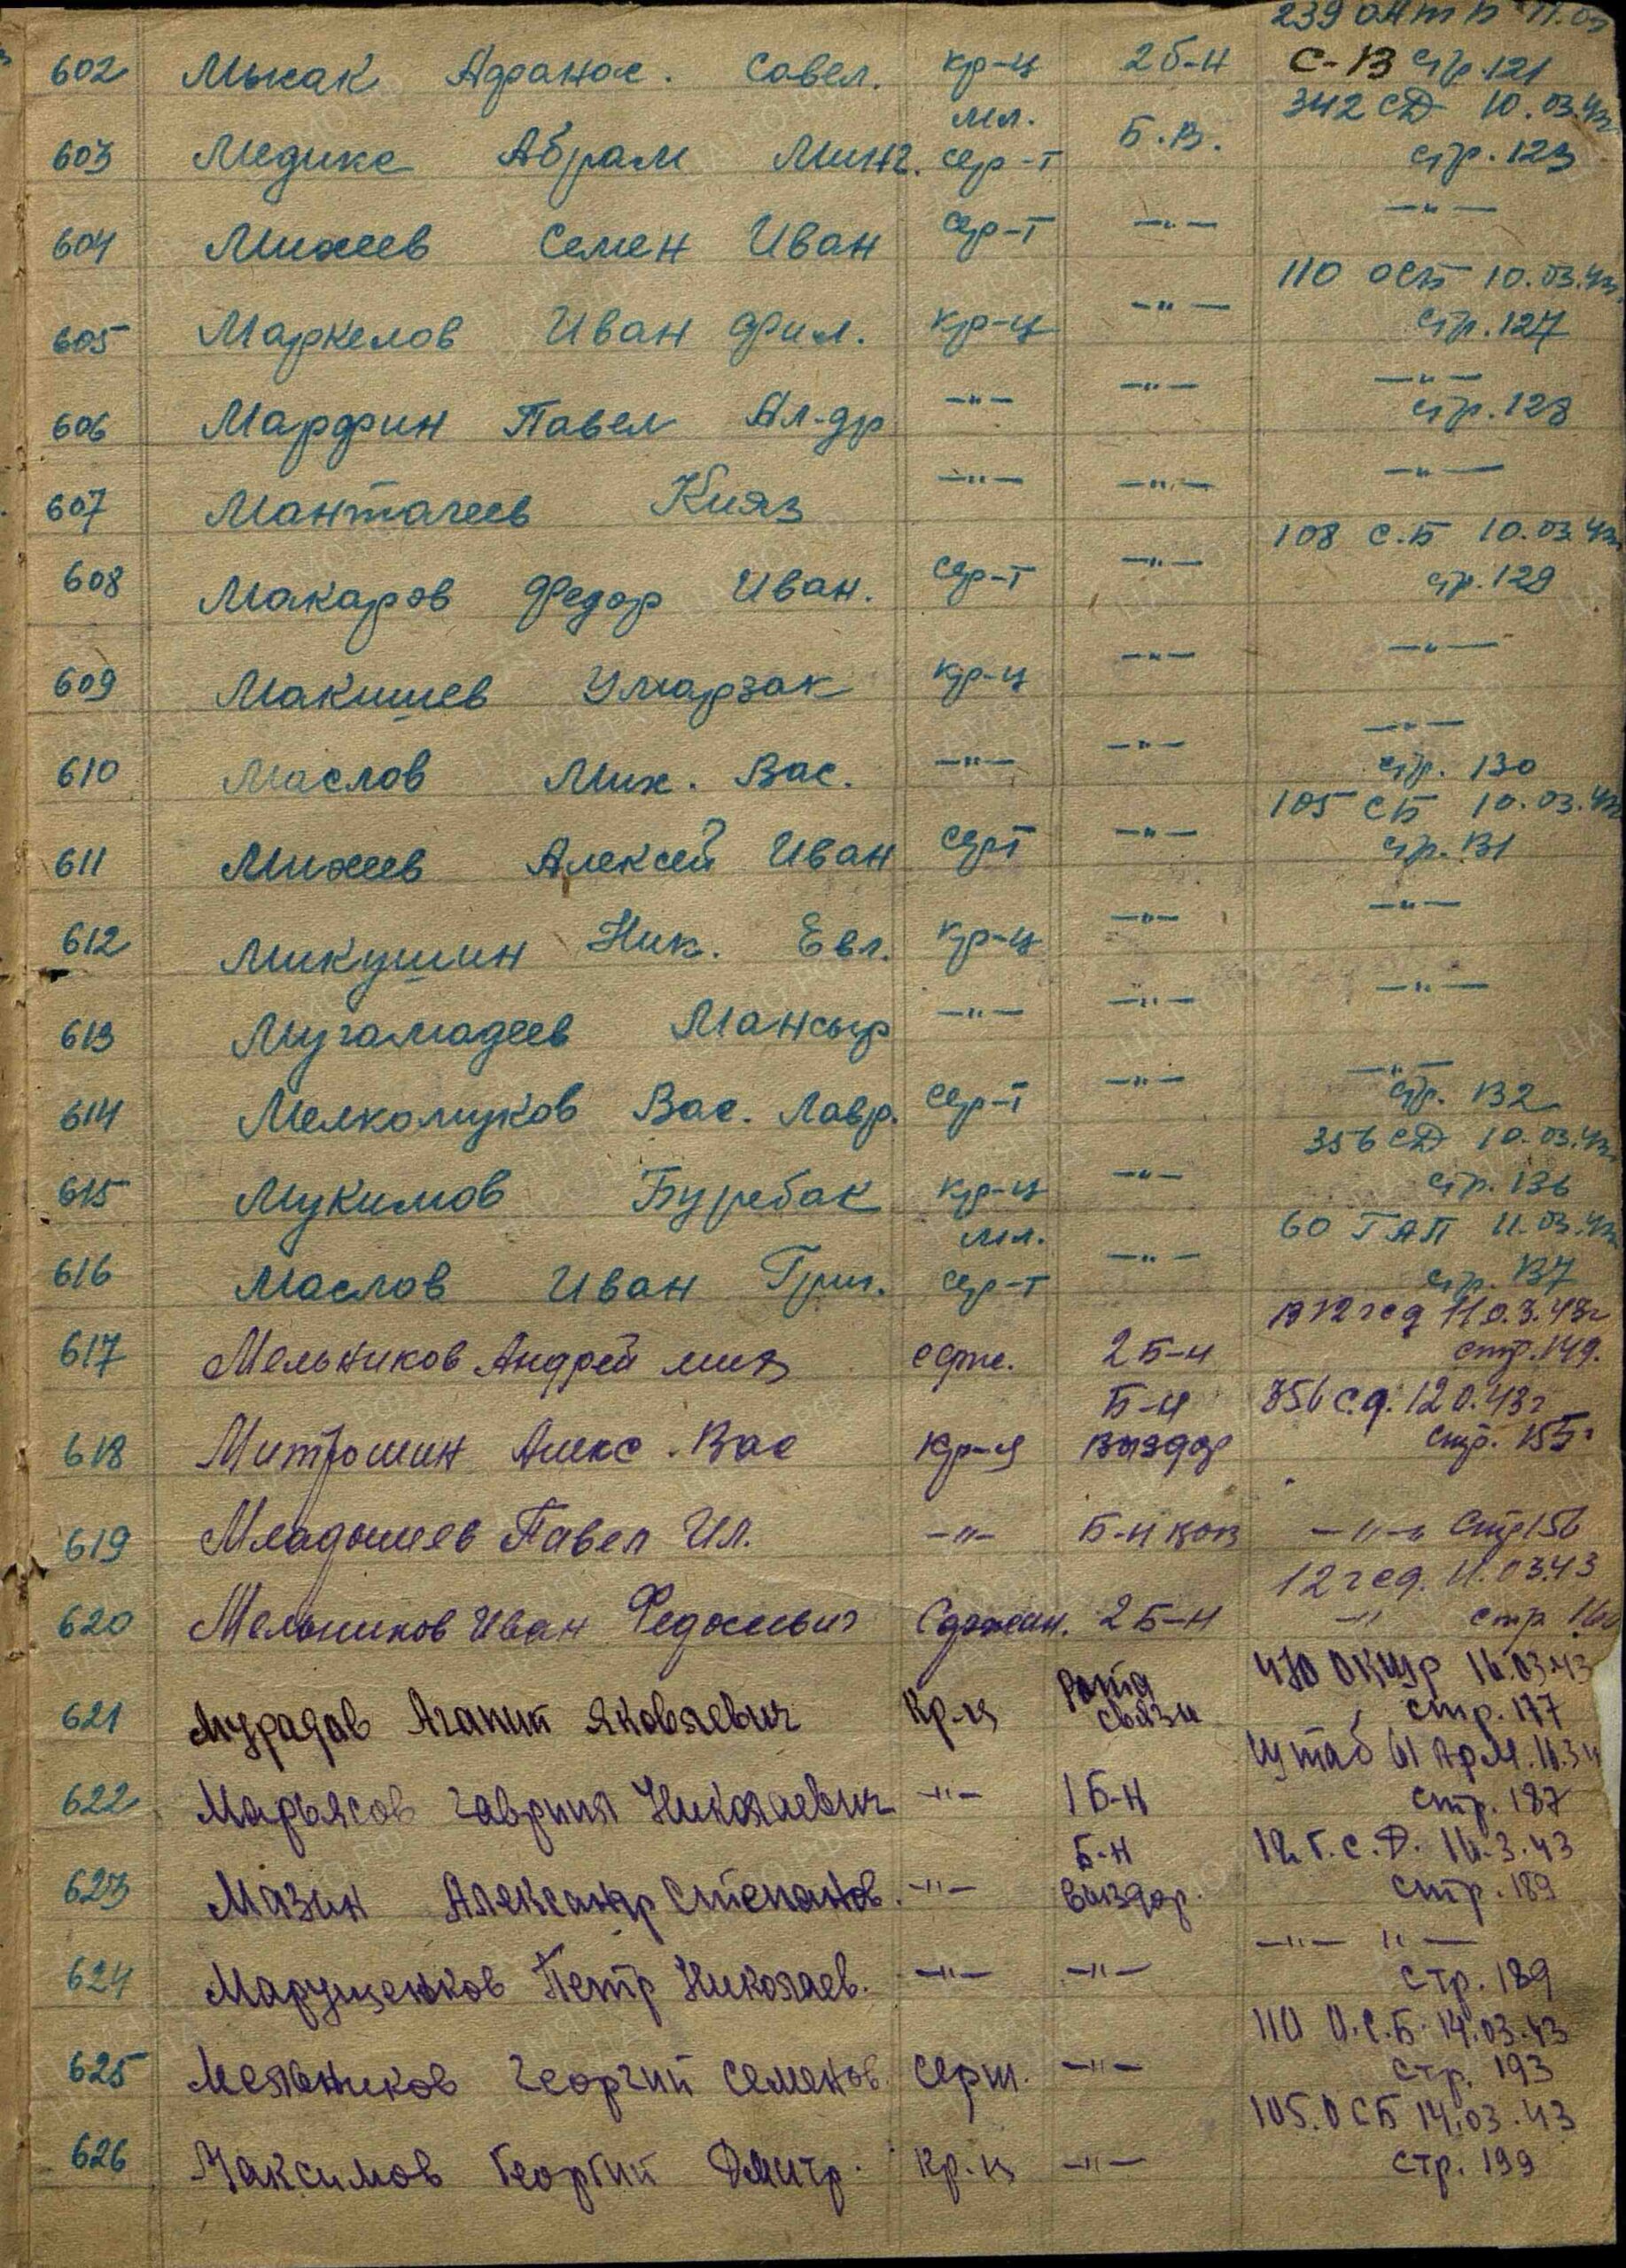 239 ОАТБ 11.03
602 Мысак Афанас. Савел. кр-ц 2 б-н С-В стр. 121
мл. 342 СД 10.03.43
603 Медикс Абрам Минг. сер-т Б.В. стр. 123
604 Михеев Семен Иван сер-т —"— —"—
110 ОСБ 10.03.43
605 Маркелов Иван Фил. кр-ц —"— стр. 127
606 Марфин Павел Ал-др —"— —"— —"— стр. 128
607 Мантачеев Княз —"— —"— —"—
108 С.Б 10.03.43
608 Макаров Федор Иван. сер-т —"— стр. 129
609 Макишев Умарзак кр-ц —"— —"—
610 Маслов Мих. Вас. —"— —"— —"— стр. 130
105 СБ 10.03.43
611 Михеев Алексей Иван серт —"— стр. 131
612 Микушин Ник. Евл. кр-ц —"— —"—
613 Мугамадеев Мансыр —"— —"— —"—
614 Мелкомуков Вас. Лавр. сер-т —"— —"— стр. 132
356 СД 10.03.43
615 Мукимов Буребак кр-ц —"— стр. 136
мл. 60 ГАП 11.03.43
616 Маслов Иван Григ. сер-т —"— стр. 137
12 гсд 11.0.3.43г
617 Мельников Андрей мих серж. 2 Б-н стр. 149.
Б-н 356 с.д. 12 0.43г
618 Митрошин Алекс. Вас кр-ц выздор стр. 155
619 Младышев Павел Ил. —"— Б-н —"— стр 156
12 гсд. 11.03.43
620 Мельников Иван Федосеевич Сержан. 2 Б-н —"— стр 160
рота 16.03.43
621 Мурадов Агапит Яковлевич кр-ц связи стр. 177
штаб 61 Арм. 16.3
622 Марьясов Гавриил Николаевич —"— 1 Б-н стр. 187
Б-н 12 Г.С.Д. 16.3.43
623 Мазин Александр Степанов. —"— выздор. стр. 189
—"— "—
624 Марущенков Петр Николаев. —"— —"— стр. 189
110 О.С.Б. 14.03.43
625 Мельников Георгий Семенов. серж. —"— стр. 193
105. ОСБ 14.03.43
626 Максимов Георгий Дмитр. кр-ц —"— стр. 199